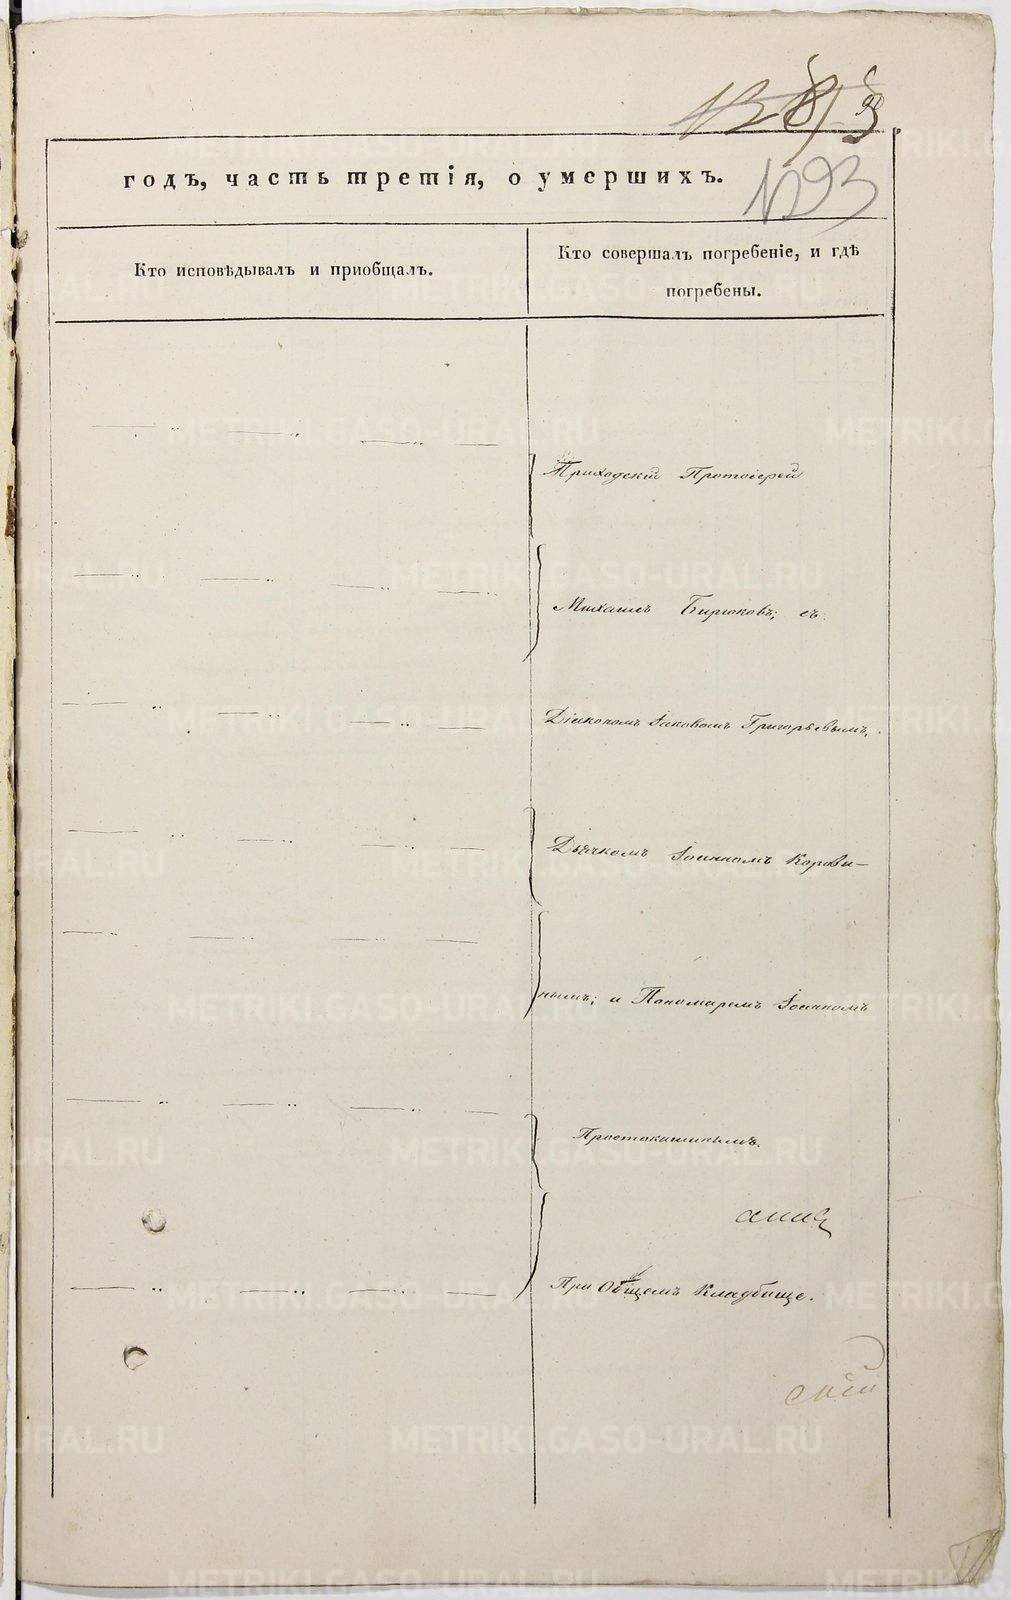 1293
годъ, часть третія, о умершихъ.
Кто исповѣдывалъ и приобщалъ.
Кто совершалъ погребеніе, и гдѣ
погребены.
Приходскій Протоіерей
Михаилъ Бирюковъ; съ
Діакономъ Іаковомъ Григорьевымъ,
Дьячкомъ Іоанномъ Корови-
нымъ; и Пономаремъ Іоанномъ
Простокишинымъ.
При Общемъ Кладбище.
METRIKI.GASO-URAL.RU